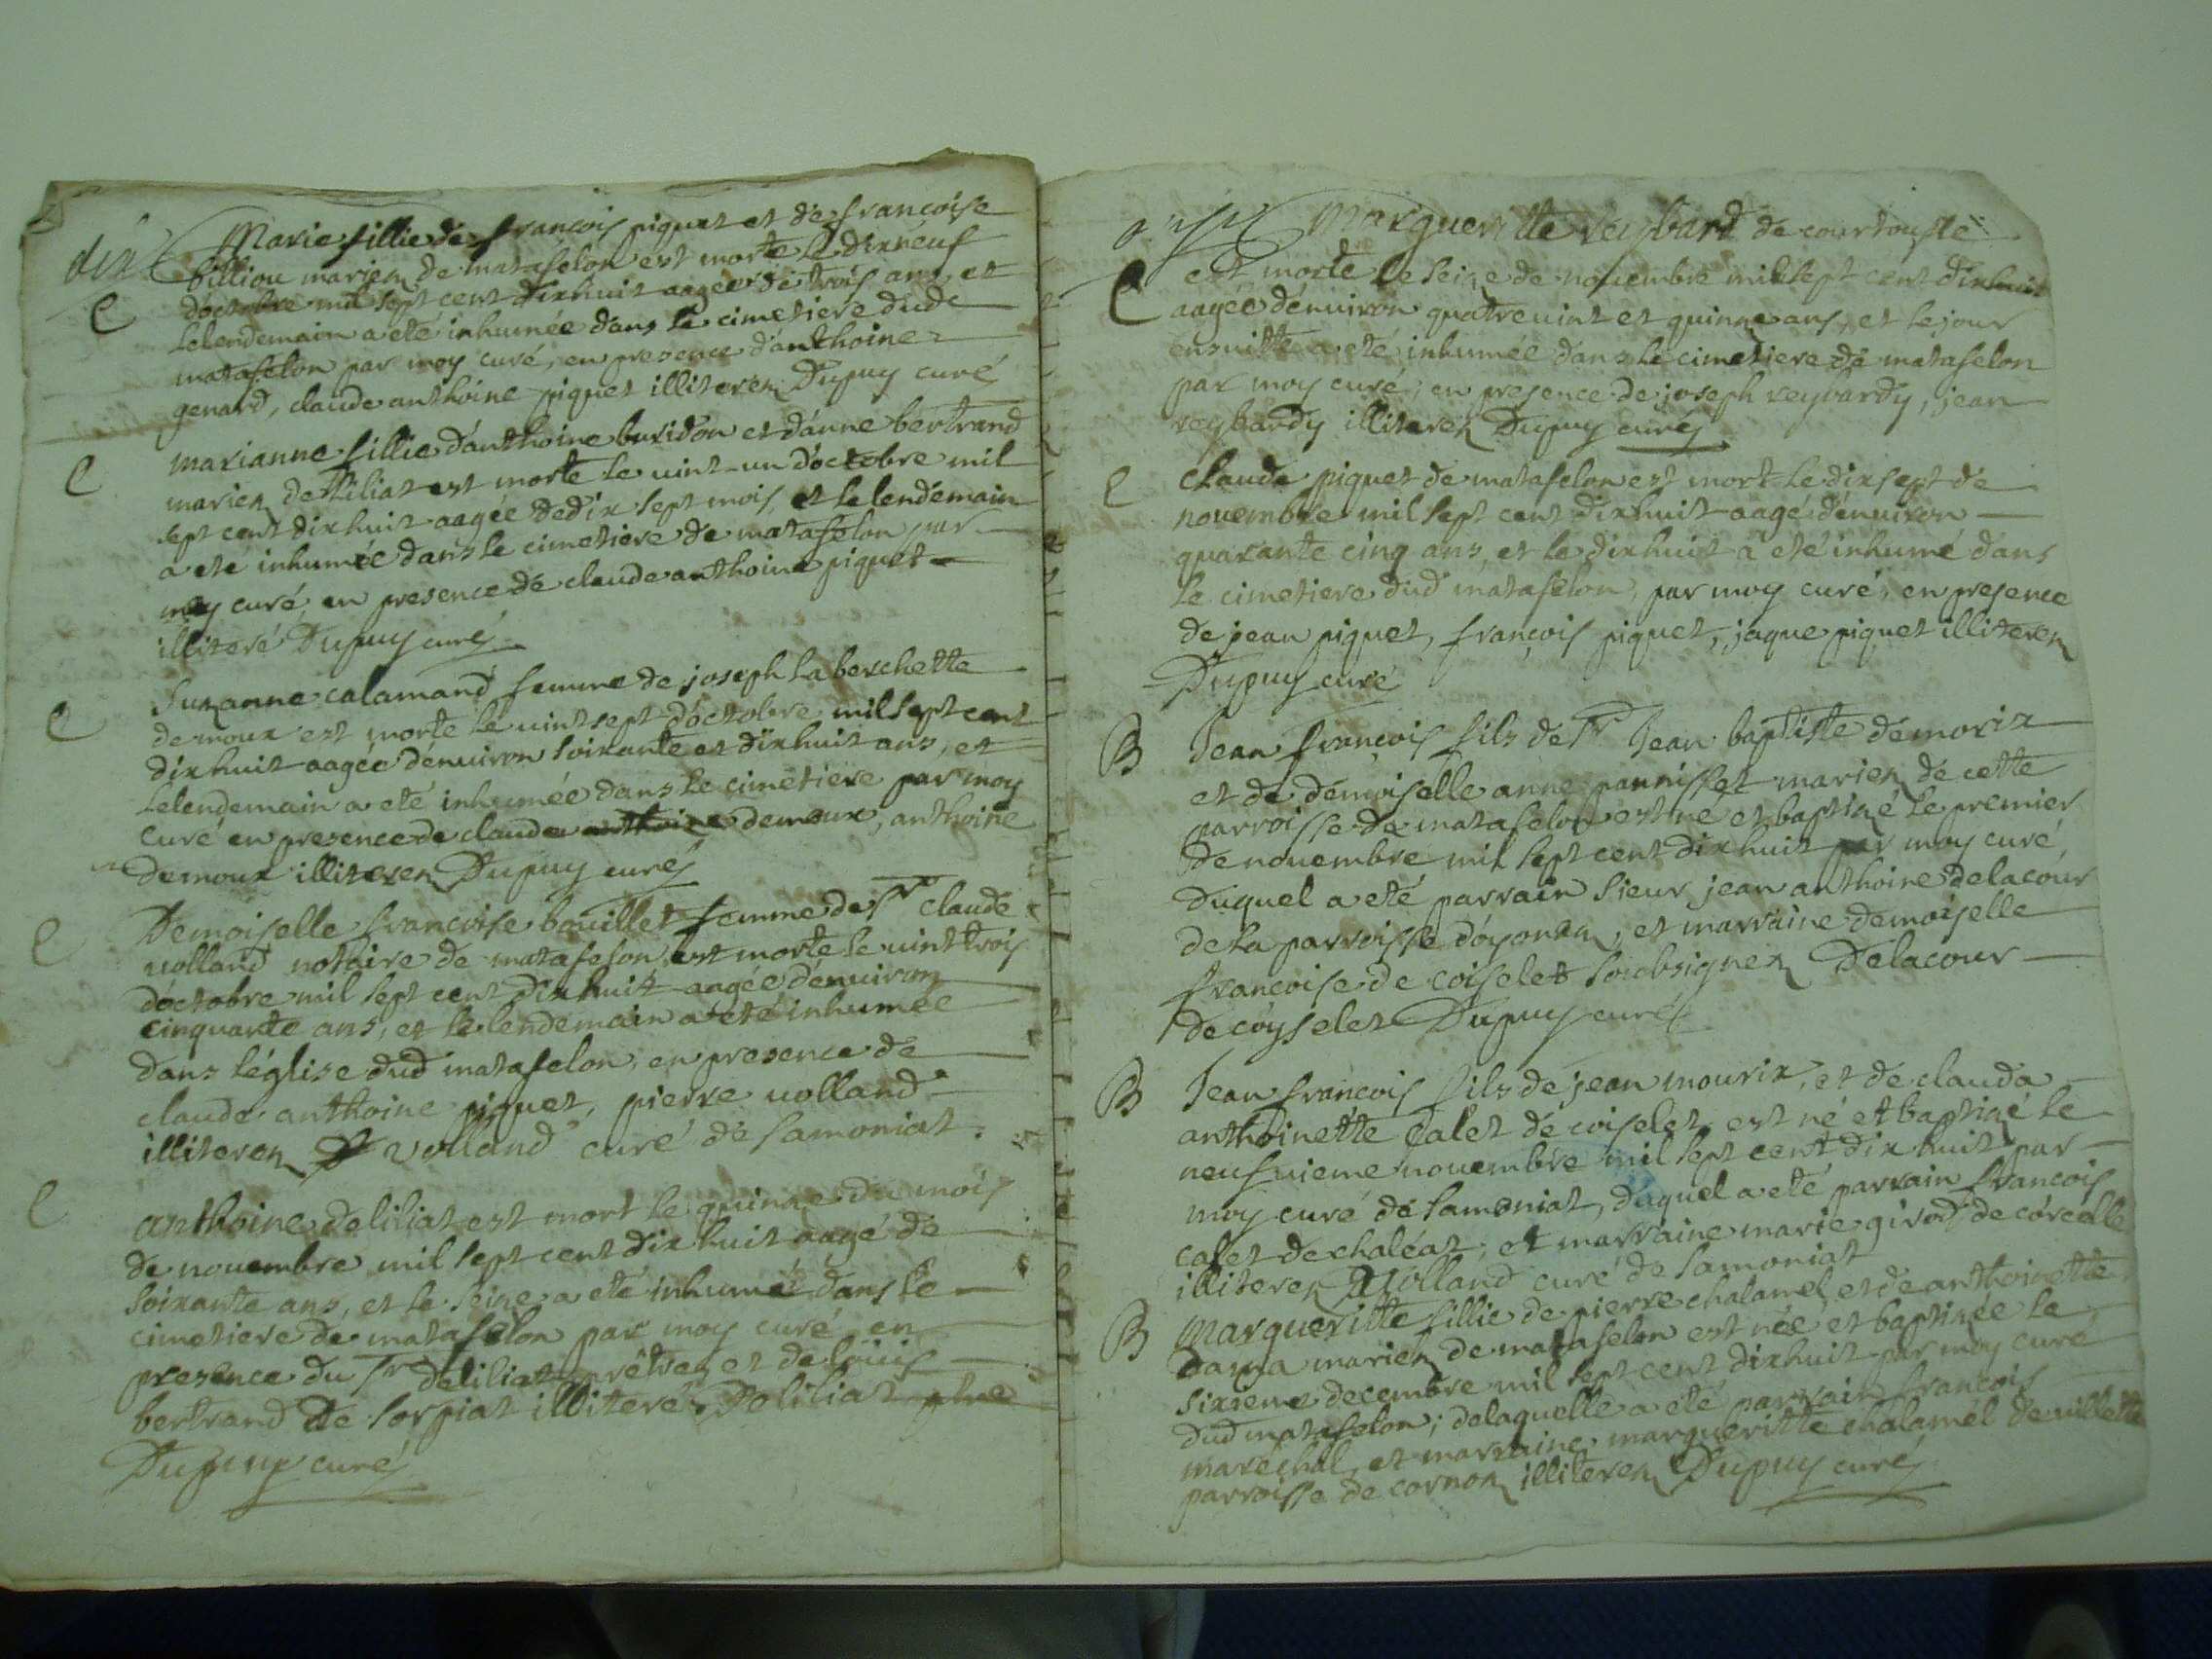 dix
Marie fillie de françois piquet et de françoise
billion mariez de matafelon est morte le dixneuf
d'octobre mil sept cent dixhuit aagée de trois ans, et
lelendemain a eté inhumée dans le cimetiere dud
matafelon par moy curé, en presence d'anthoine
genard, claude anthoine piquet illiterez Dupuy curé
C
marianne fillie d'anthoine buridon et d'anne bertrand
mariez de liliat est morte le uint-un d'octobre mil
sept cent dixhuit aagée dedix sept mois, et lelendemain
a eté inhumée dans le cimetiere de matafelon par
moy curé, en presence de claude anthoine piquet
illiteré Dupuy curé
C
Suzanne calamand femme de joseph la berchette
demoux est morte le uint sept d'octobre mil sept cent
dixhuit aagée d'enuiron soixante et dixhuit ans, et
lelendemain a eté inhumée dans le cimetiere par moy
curé en presence de claude anthoine demoux, anthoine
demoux illiterez Dupuy curé
C
Demoiselle francoise bouillet femme de Sr claude
uolland notaire de matafelon est morte le uint trois
d'octobre mil sept cent dixhuit aagée d'enuiron
cinquante ans, et le lendemain a eté inhumée
dans l'église dud matafelon, en presence de
claude anthoine piquet, pierre uolland
illiterez Volland curé de Samoniat
C
anthoine deliliat est mort le quinze du mois
de nouembre mil sept cent dixhuit aagé de
soixante ans, et le seize a eté inhumé dans le
cimetiere de matafelon par moy curé en
presence du Sr deliliat prêtre, et de louis
bertrand de sorpiat illiteré Deliliat ptre
Dupuy curé
C
onze
Margueritte reybard de courtoufle
est morte le seize de nouembre mil sept cent dixhuit
aagée d'enuiron quatreuint et quinze ans, et le jour
ensuitte a eté inhumée dans le cimetiere de matafelon
par moy curé, en presence de joseph reybardy, jean
reybardy illiterez Dupuy curé
C
Claude piquet de matafelon est mort le dixsept de
nouembre mil sept cent dixhuit aagé d'enuiron
quarante cinq ans, et le dixhuit a eté inhumé dans
le cimetiere dud matafelon, par moy curé, en presence
de jean piquet, françois piquet, jaque piquet illiterez
Dupuy curé
B
Jean françois fils de Sr Jean baptiste demorix
et de demoiselle anne pannisset mariez de cette
parroisse de matafelon est né et baptizé le premier
de nouembre mil sept cent dixhuit par moy curé,
duquel a eté parrain sieur jean anthoine delacour
de la parroisse d'oyonnaz, et marraine demoiselle
francoise de coiselet soubsignez Delacour
De coyselet Dupuy curé
B
Jean françois fils de jean mourix, et de clauda
anthoinette Calet de coiselet est né et baptizé le
neufuieme nouembre mil sept cent dix huit par
moy curé de samoniat, duquel a eté parrain françois
calet de chaléat, et marraine marie girod de corcelle
illiterez Uolland curé de samoniat
B
Margueritte fillie de pierre chalamel, et de anthoinette
mariez de matafelon est née et baptizée le
sixieme decembre mil sept cent dixhuit par moy curé
dud matafelon; delaquelle a eté parrain françois
maréchal, et marraine margueritte chalamel de uillette
parroisse de cornoz illiterez Dupuy curé